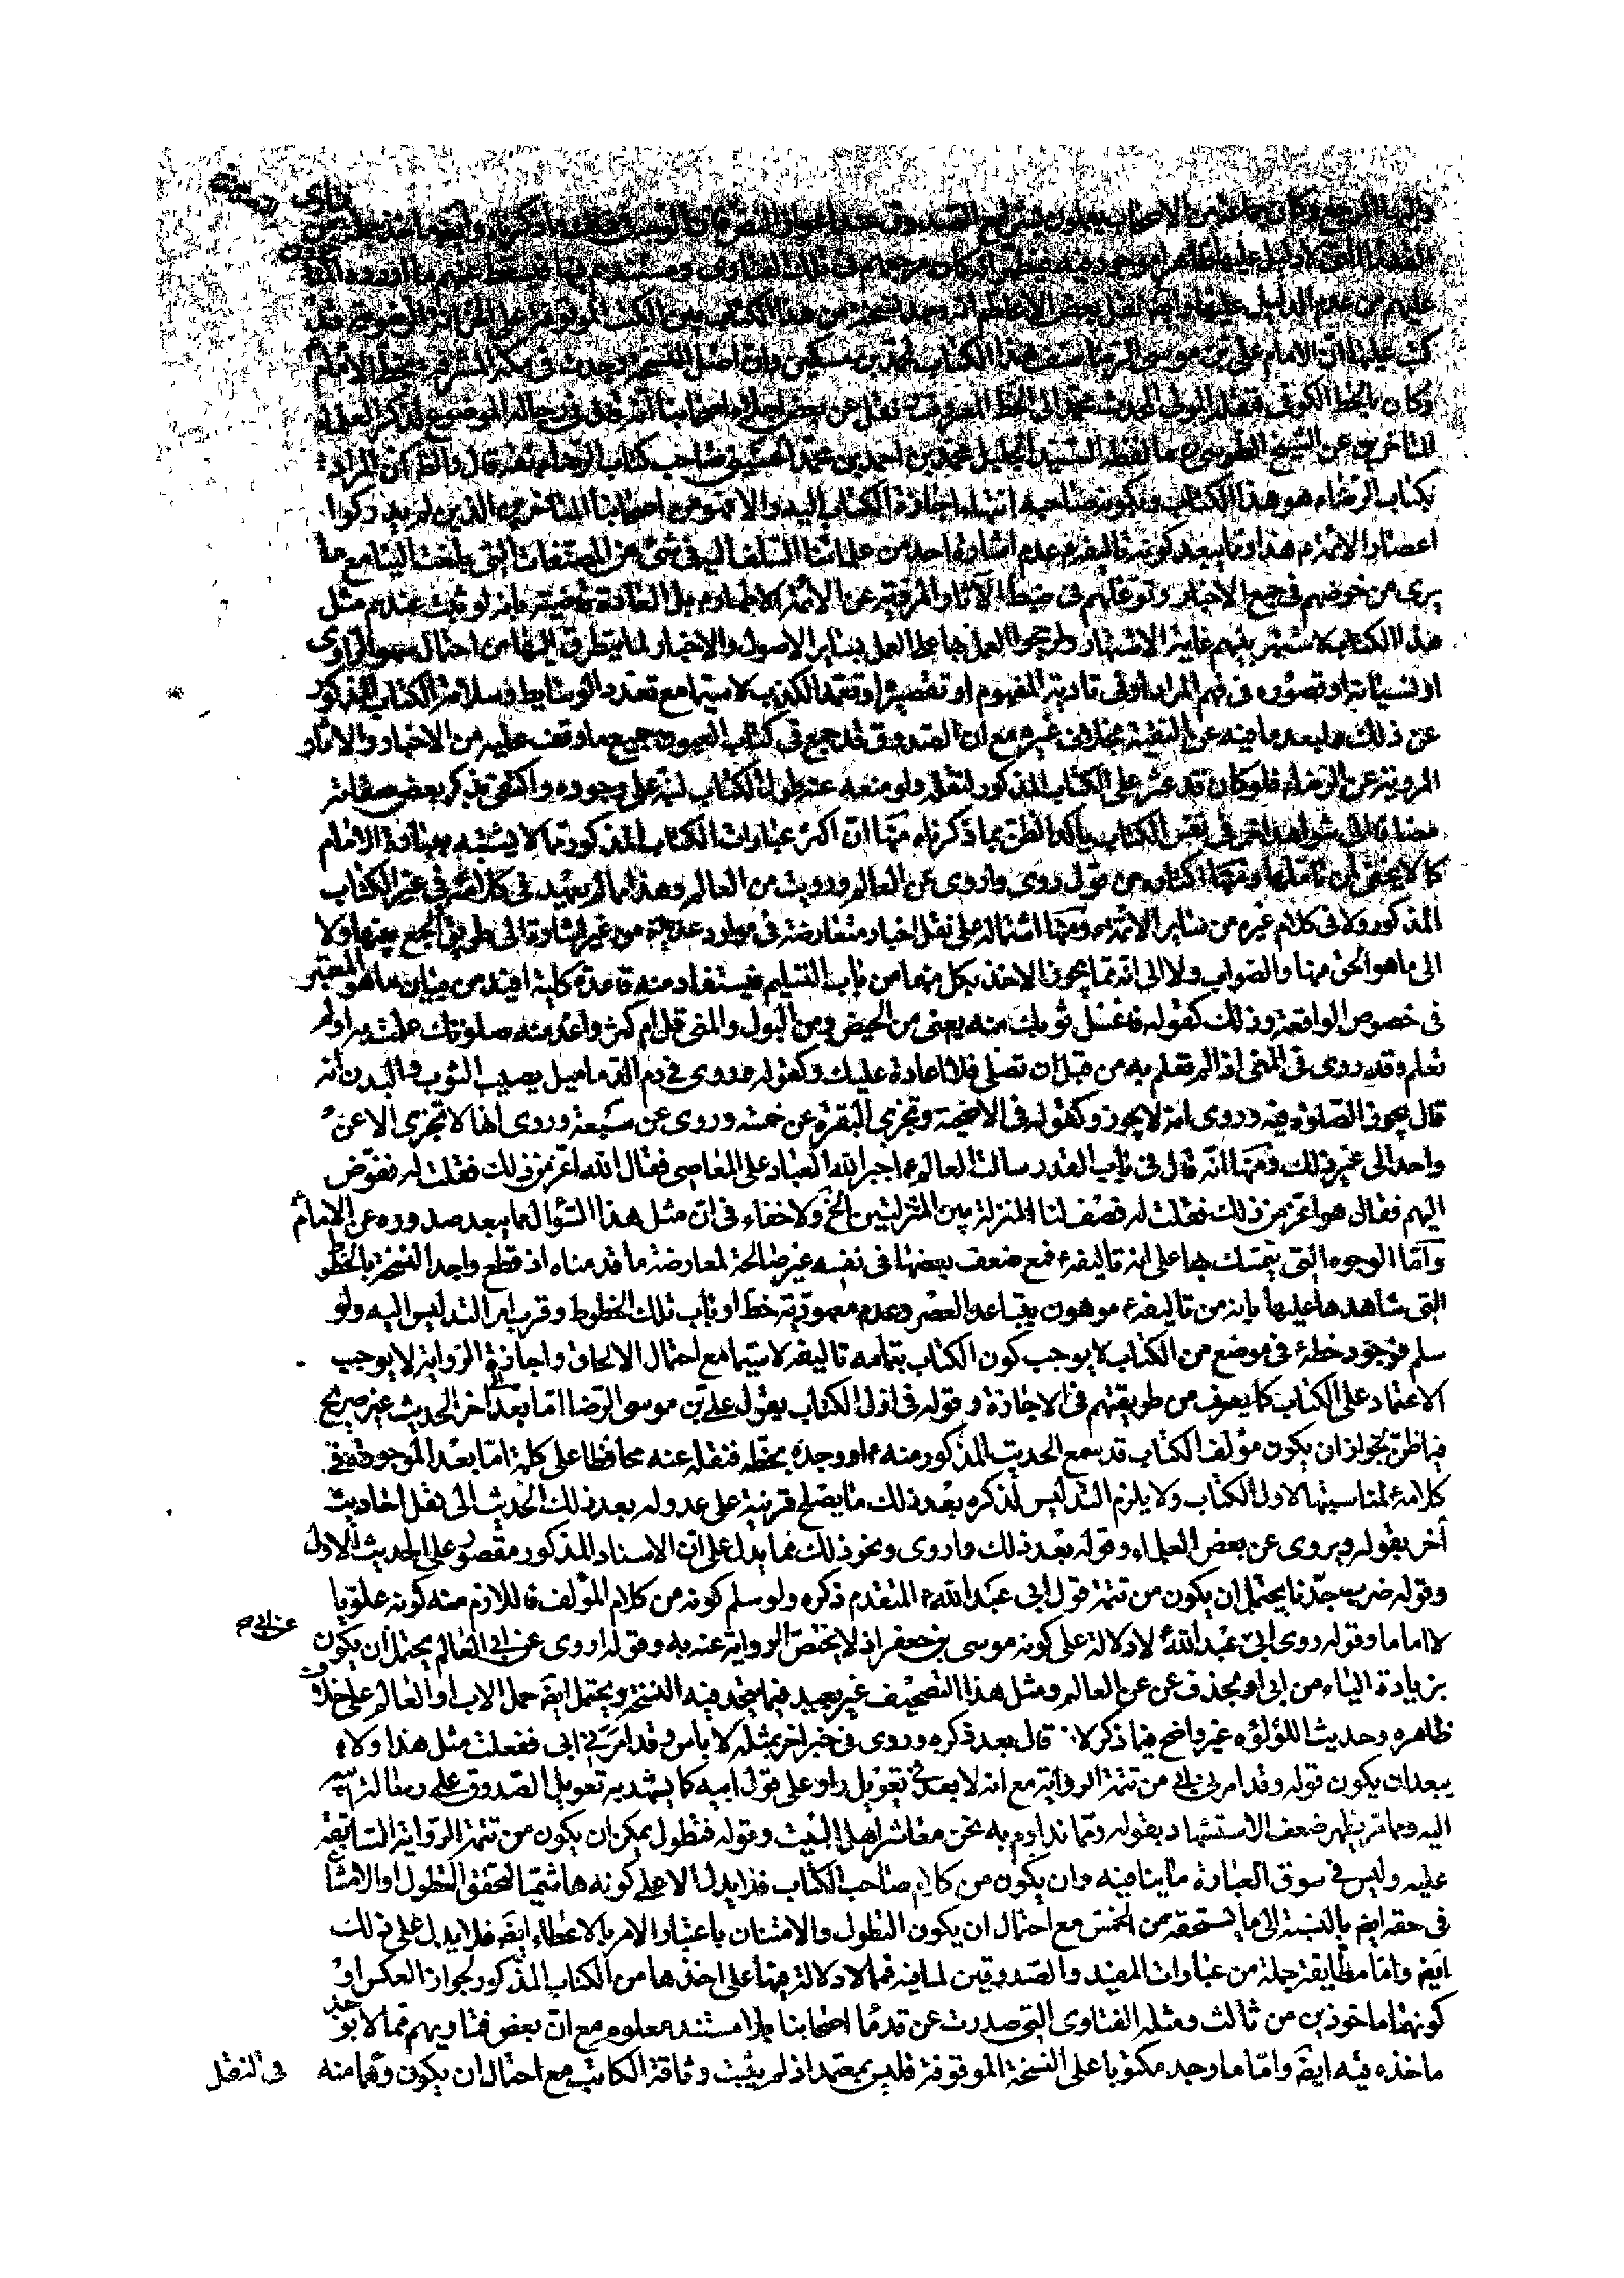 فتاوى
واليها المرجع وكان جماعة من الاصحاب يعملون بشرايع الصدوق عند اعواز النص
عليهم من عدم الدليل عليها وايضا نقل بعض الاعاظم انه وجد نسخة من هذا الكتاب بين الكتب الموقوفة على الخزانة الرضوية قد
كتب عليها ان الامام علي بن موسى الرضا صنف هذا الكتاب لمحمد بن سكين وان اصل النسخة وجدت في مكة المشرفة بخط الامام
وكان بالخط الكوفي فنقله المولى المحدث محمد الى الخط المعروف ونقل عن بعض اجلاء اصحابنا انه نقل في رجاله الموضوع لذكر العلماء
المتاخرين عن الشيخ الطوسي ما لفظه السيد الجليل محمد بن احمد بن محمد الحسيني صاحب كتاب الرضا ثقة قال والظ ان المراد
بكتاب الرضا هو هذا الكتاب وبكونه صاحبه انتهاء اجازة الكتاب اليه والا فهو من اصحابنا المتاخرين الذين لم يدركوا
اعصار الائمة م هذا ومما يبعد كونه تاليفه م عدم اشارة احد من علمائنا السلف اليه في شئ من المصنفات التي بلغت الينا مع ما
يرى من خوضهم في جمع الاخبار وتوغلهم في ضبط الآثار المروية عن الائمة الاطهار م بل العادة قاضية بانه لو ثبت عندهم مثل
هذا الكتاب لاشتهر بينهم غاية الاشتهار ولرجحوا العمل بها على العمل بساير الاصول والاخبار لما يتطرق اليها من احتمال سهو الراوي
او نسيانه او قصوره في فهم المراد او في تادية المفهوم او تقصيره او تعمد الكذب لا سيما مع تعدد الوسايط وسلامة الكتاب المذكور
عن ذلك ولبعد ما فيه عن التقية بخلاف غيره مع ان الصدوق قد جمع في كتاب العيون جميع ما وقف عليه من الاخبار والاثار
المروية عن الرضا م فلو كان قد عثر على الكتاب المذكور لنقله ولو منعه عنه طول الكتاب لنبه على وجوده واكتفى بذكر بعض صفاته
مضافا الى شواهد اخر في نفس الكتاب يتاكد الظن بما ذكرناه منها ان اكثر عبارات الكتاب المذكور مما لا يشبه بعبارة الامام
كما لا يخفى لمن تاملها ومنها اكثاره من قول روى واروى عن العالم ورويت من العالم وهذا مما لم يعهد في كلامه في غير الكتاب
المذكور ولا في كلام غيره من ساير الائمة م ومنها اشتماله على نقل اخبار متعارضة في موارد عديدة من غير اشارة الى طريق الجمع بينها ولا
الى ما هو الحق منها والصواب ولا الى انه مما يجوز الاخذ بكل منهما من باب التسليم فيستفاد منه قاعدة كلية افيد من بيان ما هو المعتبر
في خصوص الواقعة وذلك كقوله فاغسل ثوبك منه يعنى من الحيض ومن البول والمنى قل ام كثر واعد منه صلوتك علمت به او لم
تعلم وقد روى في المنى اذا لم تعلم به من قبل ان تصلى فلا اعادة عليك وكقوله وروى في دم الدماميل يصيب الثوب والبدن انه
قال يجوز الصلوة فيه وروى انه لا يجوز وكقوله في الاضحية وتجزى البقرة عن خمسة وروى عن سبعة وروى انها لا تجزى الا عن
واحد الى غير ذلك ومنها انه قال في باب القدر سالت العالم م اجبر الله العباد على المعاصى فقال الله اعز من ذلك فقلت له ففوض
اليهم فقال هو اعز من ذلك فقلت له فصف لنا المنزلة بين المنزلتين الخ ولا خفاء في ان مثل هذا السؤال مما يبعد صدوره عن الامام
وامّا الوجوه التي يتمسك بها على انه تاليفه م فمع ضعف بعضها في نفسه غير صالحة لمعارضة ما قدمناه اذ قطع واجد النسخة بالخطوط
التى شاهدها عليها بانه من تاليفه م موهون بتباعد العصر وعدم معهودية خط ارباب تلك الخطوط وقرب امر التدليس اليه ولو
سلم فوجود خطه م في موضع من الكتاب لا يوجب كون الكتاب بتمامه تاليفه لا سيما مع احتمال الالحاق واجازة الرواية لا يوجب
الاعتماد على الكتاب كما يعرف من طريقتهم في الاجازة وقوله في اول الكتاب يقول على بن موسى الرضا اما بعد الى اخر الحديث غير صريح
فيما ظن لجواز ان يكون مؤلف الكتاب قد سمع الحديث المذكور منه م او وجده بخطه فنقله عنه محافظا على كلمة امّا بعد الموجودة في
كلامه م لمناسبتها لاول الكتاب ولا يلزم التدليس لذكره بعد ذلك ما يصلح قرينة على عدوله بعد ذلك الحديث الى نقل احاديث
أخر بقوله ويروى عن بعض العلماء وقوله بعد ذلك واروى ونحو ذلك مما يدل على ان الاسناد المذكور مقصور على الحديث الاول
وقوله ضرب بجدنا يحتمل ان يكون من تتمة قول ابى عبد الله م المتقدم ذكره ولو سلم كونه من كلام المؤلف فاللازم منه كونه علويا
لا اماما وقوله روى ابى عبد الله لا دلالة على كونه موسى بن جعفر اذ لا يختص الرواية عنه به وقوله اروى عن ابى العالم يحتمل ان يكون
بزيادة الياء من ابى او بحذف عن عن العالم ومثل هذا التصحيف غير بعيد فيما يتحد فيه النسخة ويحتمل ايضَ حمل الاب او العالم على خلاف
ظاهره وحديث اللؤلؤه غير واضح فيما ذكر لا. قال بعد ذكره وروى في خبر اخر بمثله لا باس وقد امرنى ابى ففعلت مثل هذا ولاء
يبعد ان يكون قوله وقد امرنى ابى من تتمة الرواية مع انه لا بعد في تعويل راو على قول ابيه كما يشهد به تعويل الصدوق على رسالة ابيه
اليه ومما مر يظهر ضعف الاستشهاد بقوله ومما نداوم به نحن معاشر اهل البيت وقوله فنطول يمكن ان يكون من تتمة الرواية السابقة
عليه وليس في سوق العبارة ما ينافيه وان يكون من كلام صاحب الكتاب فلا يدل الا على كونه هاشميا لتحقق التطول او الامتنا
في حقه ايضَ بالنسبة الى ما يستحقه من الخمس مع احتمال ان يكون التطول والامتنان باعتبار الامر بالاعطاء ايضَ فلا يدل على ذلك
ايضَ وامّا مطابقة جملة من عبارات المفيد والصدوقين لما فيه فمما لا دلالة فيها على اخذها من الكتاب المذكور لجواز العكس او
كونهما ماخوذين من ثالث ومثله الفتاوى التى صدرت عن قدماء اصحابنا بلا مستند معلوم مع ان بعض فتاويهم مما لا يوجد
ماخذه فيه ايضَ وامّا ما وجد مكتوبا على النسخة الموقوفة فليس بمعتمد اذ لم يثبت وثاقة الكاتب مع احتمال ان يكون وهما منه
في النقل